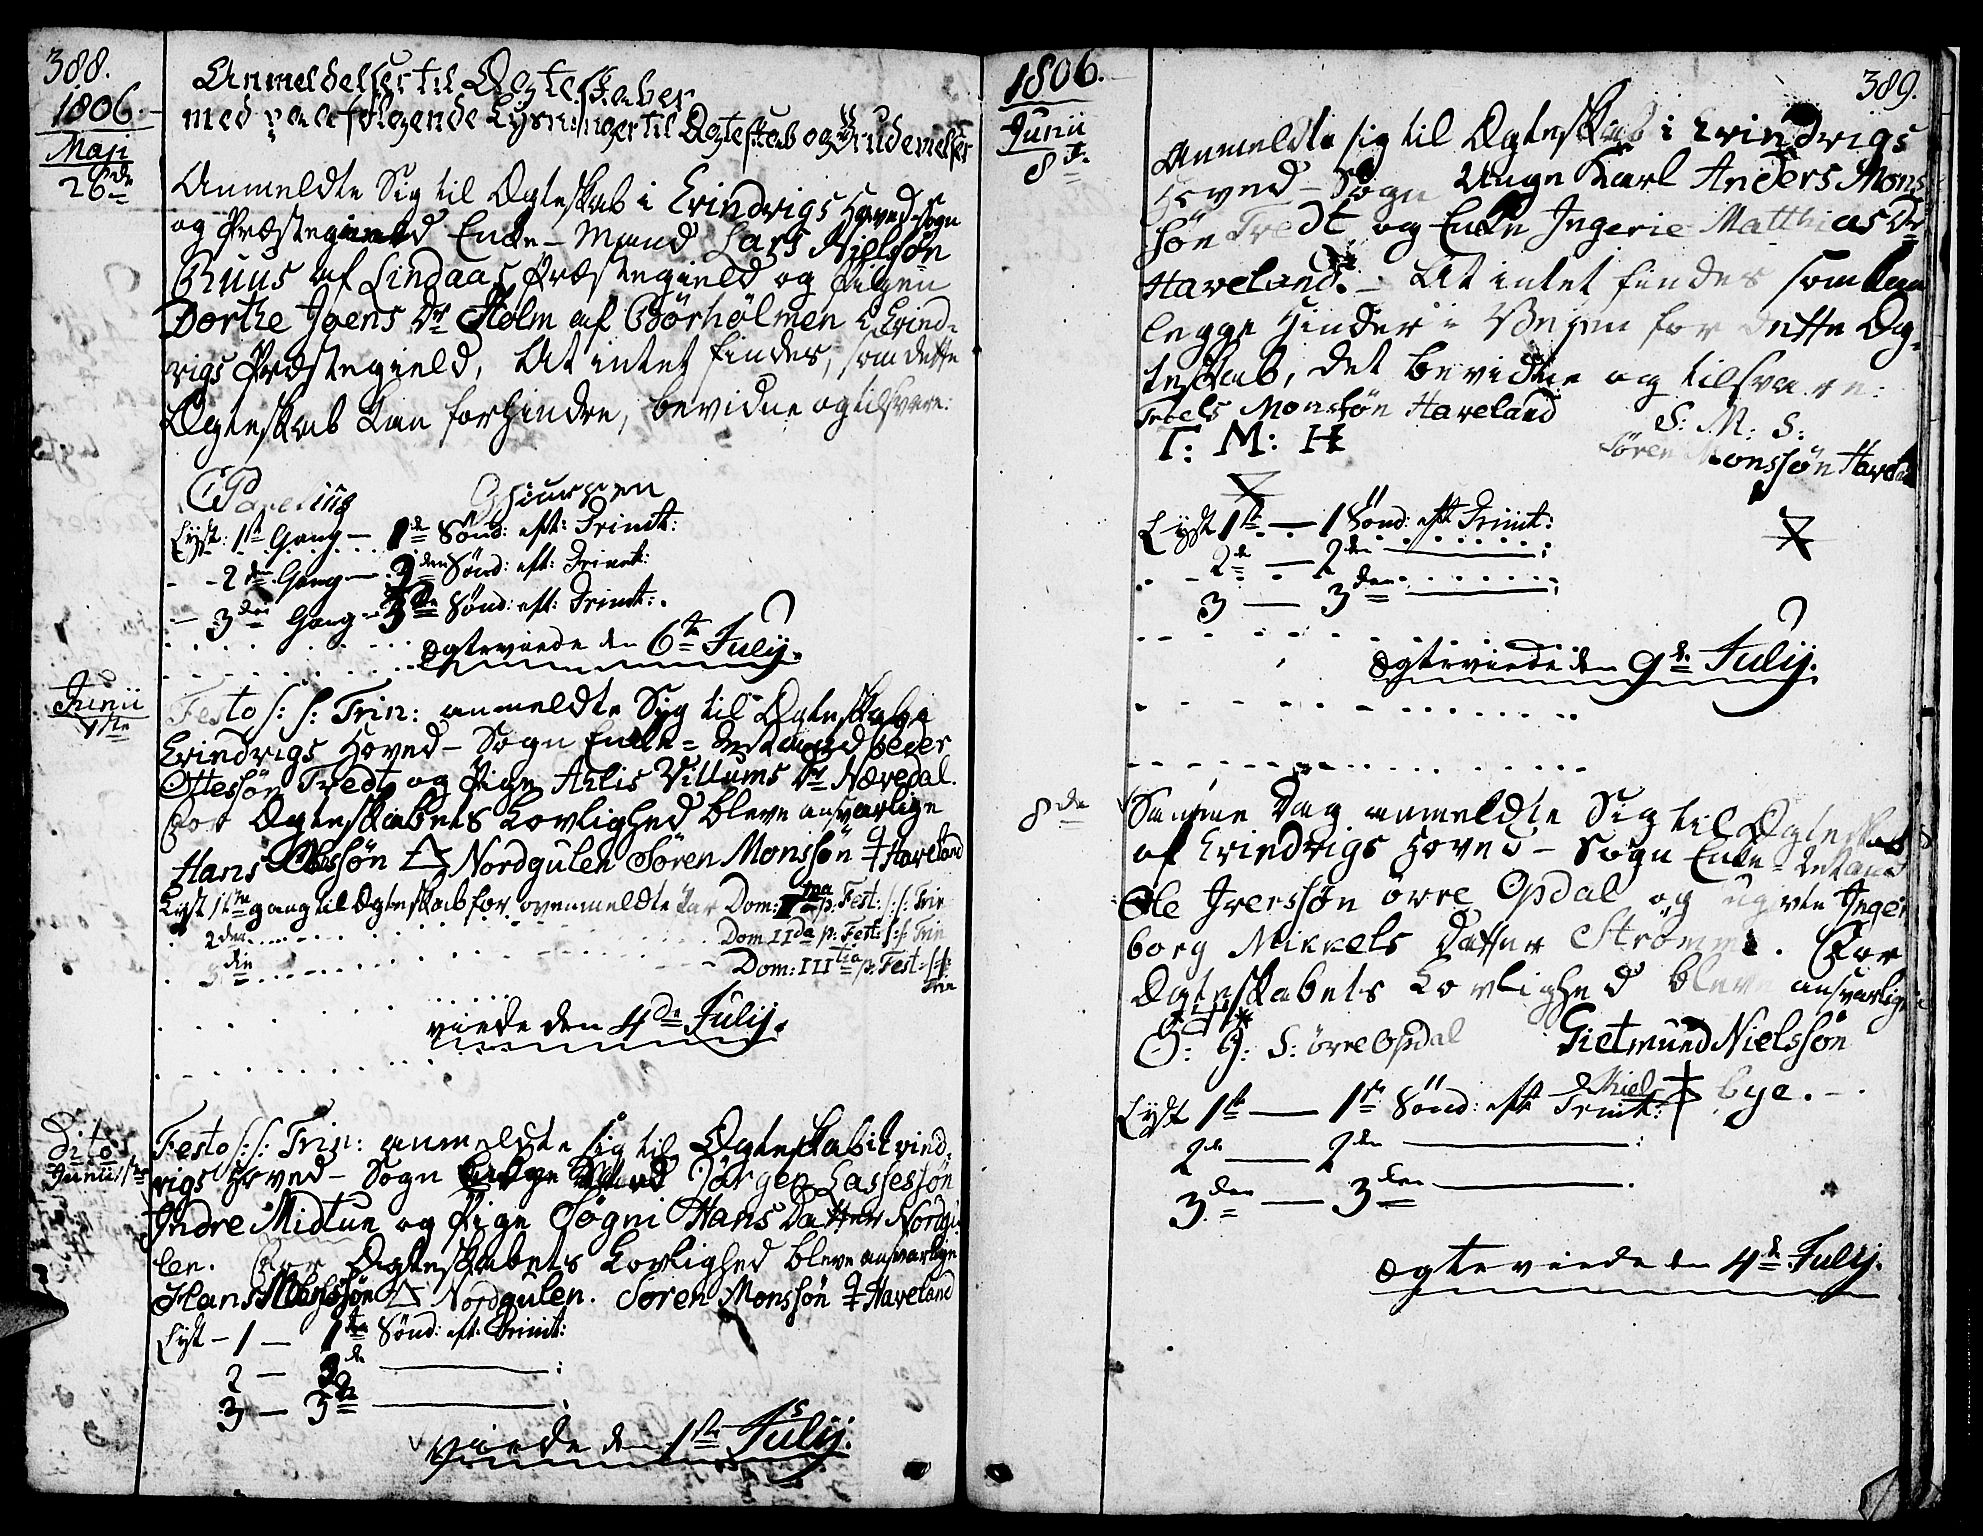 388.
1806.
Anmeldelser til Ægteskaber
med paafølgende Lysninger til Ægteskab og Brudevielser
Maji
26de
Anmeldte Sig til Ægteskab i Evindvigs Hoved-Sogn
og Præstegield Enke-Mand Lars Nielsøn
Ruus af Lindaas Præstegield og Pigen
Dorthe Joens Dr Holm af Börhölmen i Evind-
vigs Præstegield, At intet findes, som dette
Ægteskab kan forhindre, bevidne og tilsvare:
Lyst: 1ste Gang — 1de Sönd: eft: Trinit:
- - 2den Gang — 2den Sönd: eft: Trinit:
- 3den Gang — 3de Sönd: eft: Trinit:.
Ægteviede den 6te Julij.
Junii
1ste
Festo s: s: Trin: anmeldte Sig til Ægteskab i
Evindvigs Hoved-Sogn Enke-Mand Peder
Ottessön Tredt og Pige Anlis Villums Dr Næredal.
For Ægteskabets Lovlighed bleve ansvarlige
Hans Nordgulen Sören Monssön Haveland
Lyst 1ste gang til Ægteskab for ovenmeldte Par Dom: Ima p: Fest: s: s: Trin
2den Dom IIda p: Fest: s: s: Trin
3die Dom: IIItia p: Fest: s: s:
Trin
viede den 4de Julij.
Dito
Junii 1ste
Festo s: s: Trin: anmeldte sig til Ægteskab i Evind-
vigs Hoved-Sogn Jörgen Lassessön
Indre Midtun og Pige Sögni Hans Datter Nordgu-
len. For Ægteskabets Lovlighed bleve ansvarlige
Hans Nordgulen. Sören Monssön Haveland
Lyst - 1 — 1ste Sönd: eft: Trinit:
2 — 2de — :
3 — 3de — :
viede den 1ste Julij.
1806.
389.
Junii
8de
Anmeldte sig til Ægteskab i Evindvigs
Hoved-Sogn Unge Karl Anders Mons
søn Tredt og Enke Ingerie Matthias Dr
Haveland. - At intet findes som kan
legge Hinder i Vejen for dette Æg-
teskab, det bevidne og tilsvare:
Troels Monsön Haveland
S: M: S:
T: M: H
Sören Monssön Haveland
Lyst 1ste — 1 Sönd: eft Trinit:
2de — 2den — :
3 — 3den — :
Ægteviede den 9de Julij.
8de
Samme Dag anmeldte Sig til Ægteskab
af Evindvigs Hoved-Sogn Enke-Mand
Ole Iverssön övre Opdal og ugivte Inge-
borg Mikkels Datter Strömme. For
Ægteskabets Lovlighed bleve ansvarlige
O: I: S: övre Opdal Gietmund Nielssön
Bye. -
Lyst 1ste — 1ste Sönd: eft Trinit:
2de — 2den — :
3den — 3den — .
Ægteviede den 4de Julij.